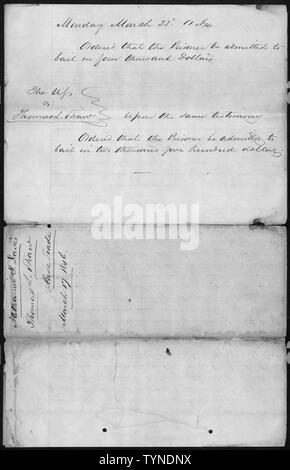 Monday March 23d 11 A.M.
Ordered that the Prisoner be admitted to
bail in four thousand Dollars
The US
vs
Thomas L. Shaw
Upon the same testimony
Ordered that the Prisoner be admitted to
bail in two thousand five hundred dollars
Thomas L. Shaw
Slave Trade
March 17, 1846
alamy
YTNDNX